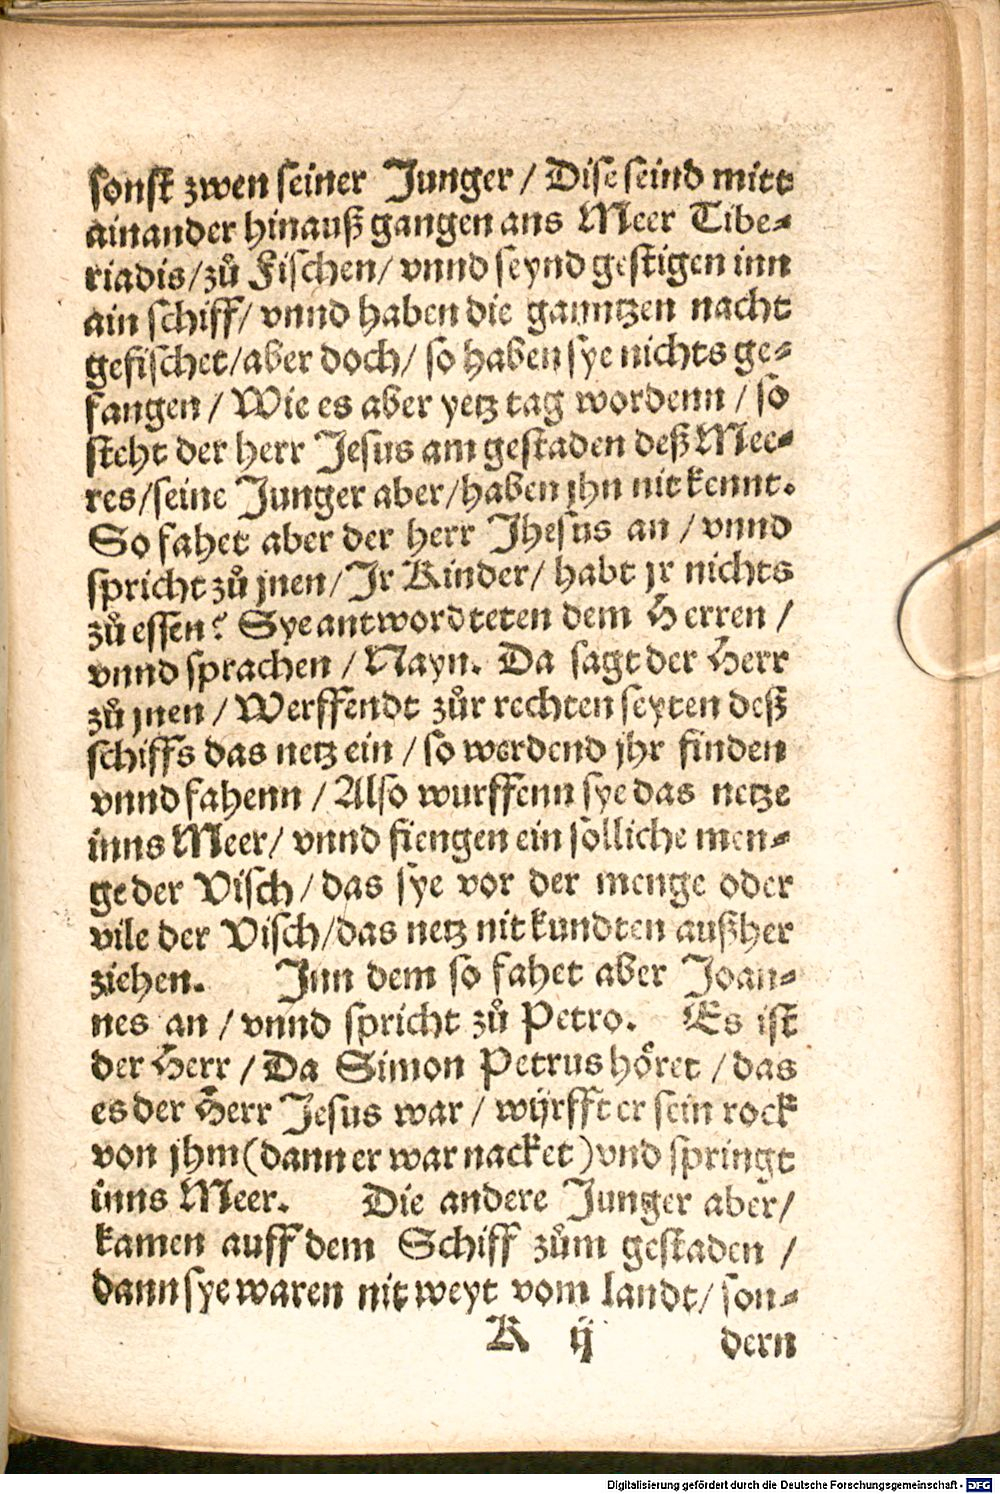 sonst zwen seiner Junger / Dise seind mitt
ainander hinauß gangen ans Meer Tibe-
riadis/zů Fischen/ vnnd seynd gestigen inn
ain schiff/ vnnd haben die ganntzen nacht
gefischet/aber doch/ so haben sye nichts ge-
fangen / Wie es aber yetz tag wordenn / so
steht der herr Jesus am gestaden deß Mee-
res/seine Junger aber/haben jhn nit kennt.
So fahet aber der herr Jhesus an / vnnd
spricht zů jnen/ Jr Kinder/ habt jr nichts
zů essen? Sye antwordteten dem Herren /
vnnd sprachen / Nayn. Da sagt der Herr
zů jnen / Werffendt zůr rechten seyten deß
schiffs das netz ein / so werdend jhr finden
vnnd fahenn / Also wurffenn sye das netze
inns Meer/ vnnd fiengen ein solliche men-
ge der Visch / das sye vor der menge oder
vile der Visch/das netz nit kundten außher
ziehen. Inn dem so fahet aber Joan-
nes an / vnnd spricht zů Petro. Es ist
der Herr / Da Simon Petrus hőret / das
es der Herr Jesus war / wÿrfft er sein rock
von jhm (dann er war nacket) vnd springt
inns Meer. Die andere Junger aber/
kamen auff dem Schiff zům gestaden /
dann sye waren nit weyt vom landt/ son-
K ij dern
Digitalisierung gefördert durch die Deutsche Forschungsgemeinschaft - DFG